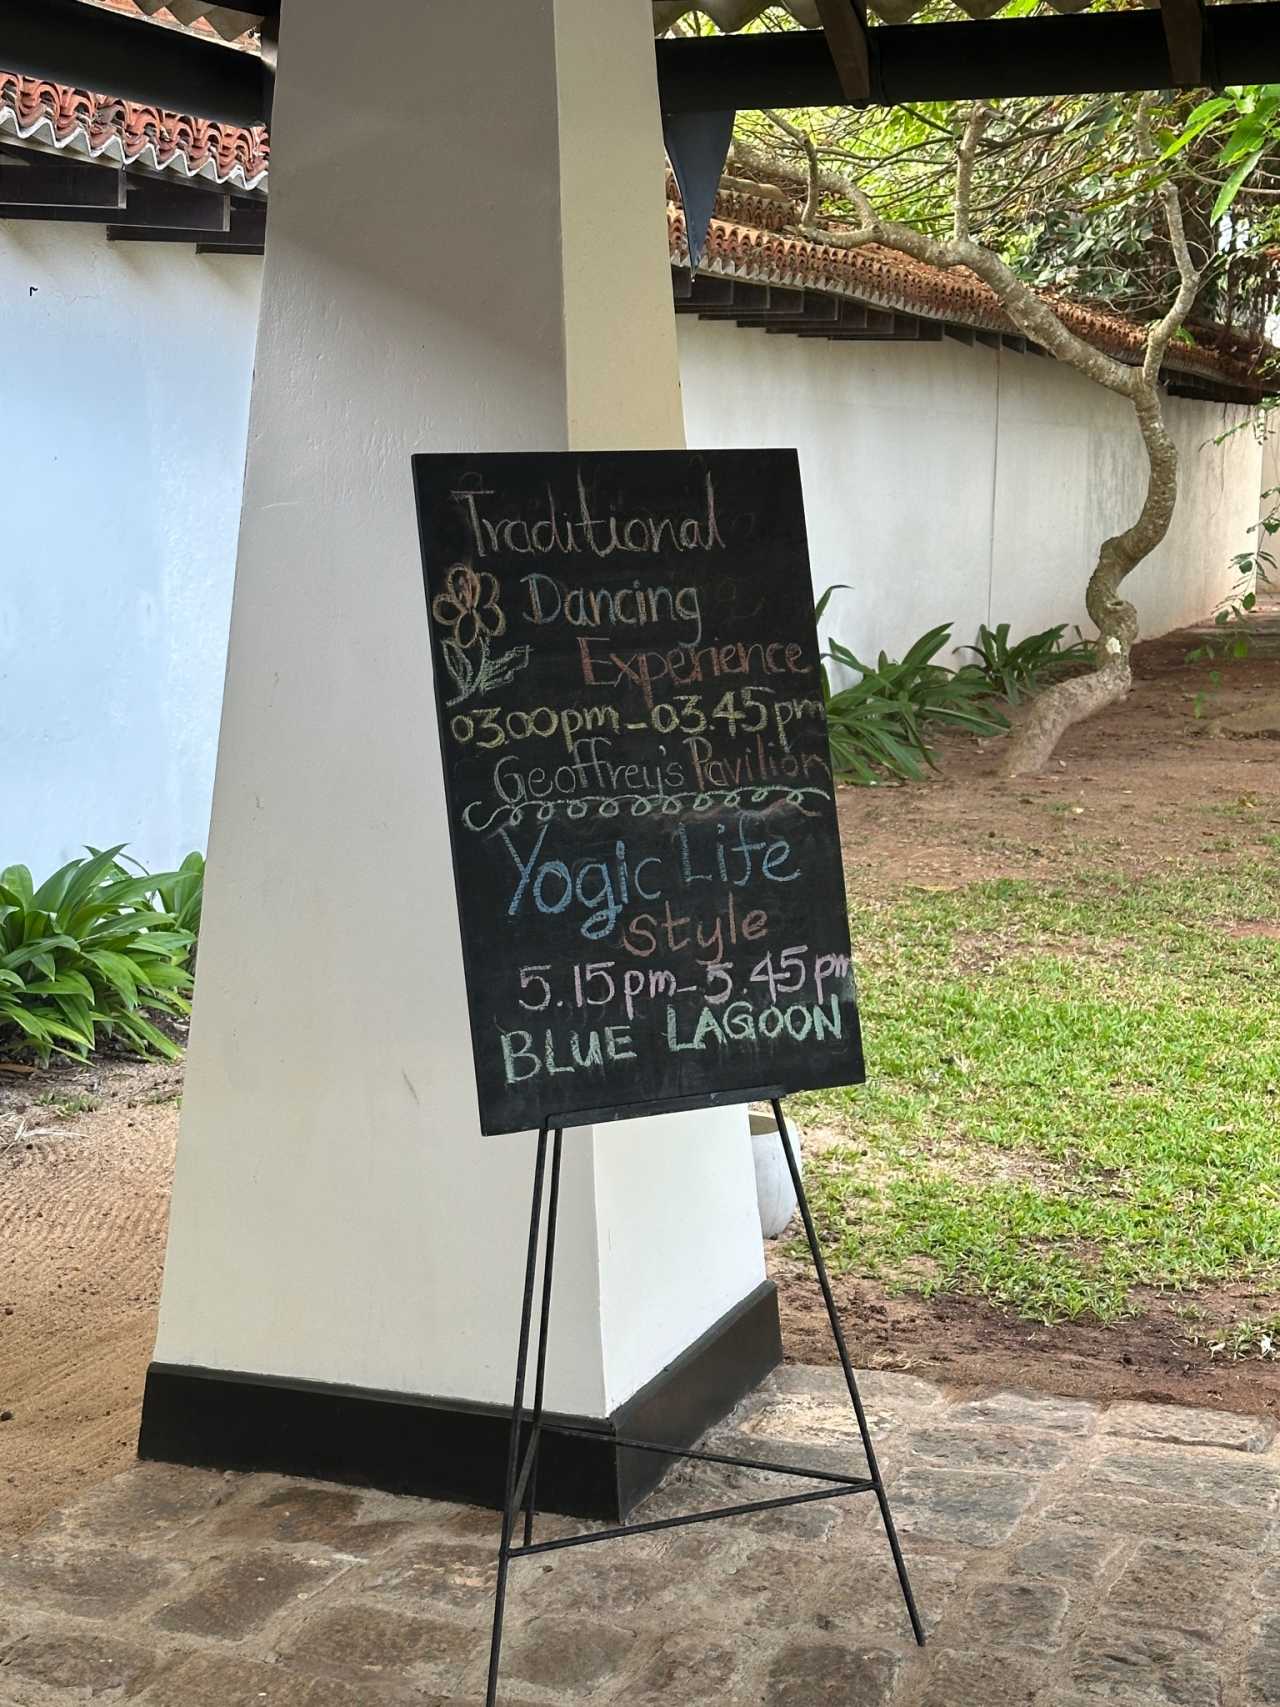 Traditional
Dancing
Experience
03.00pm-03.45pm
Geoffrey's Pavilion
Yogic Life
style
5.15pm-5.45pm
BLUE LAGOON